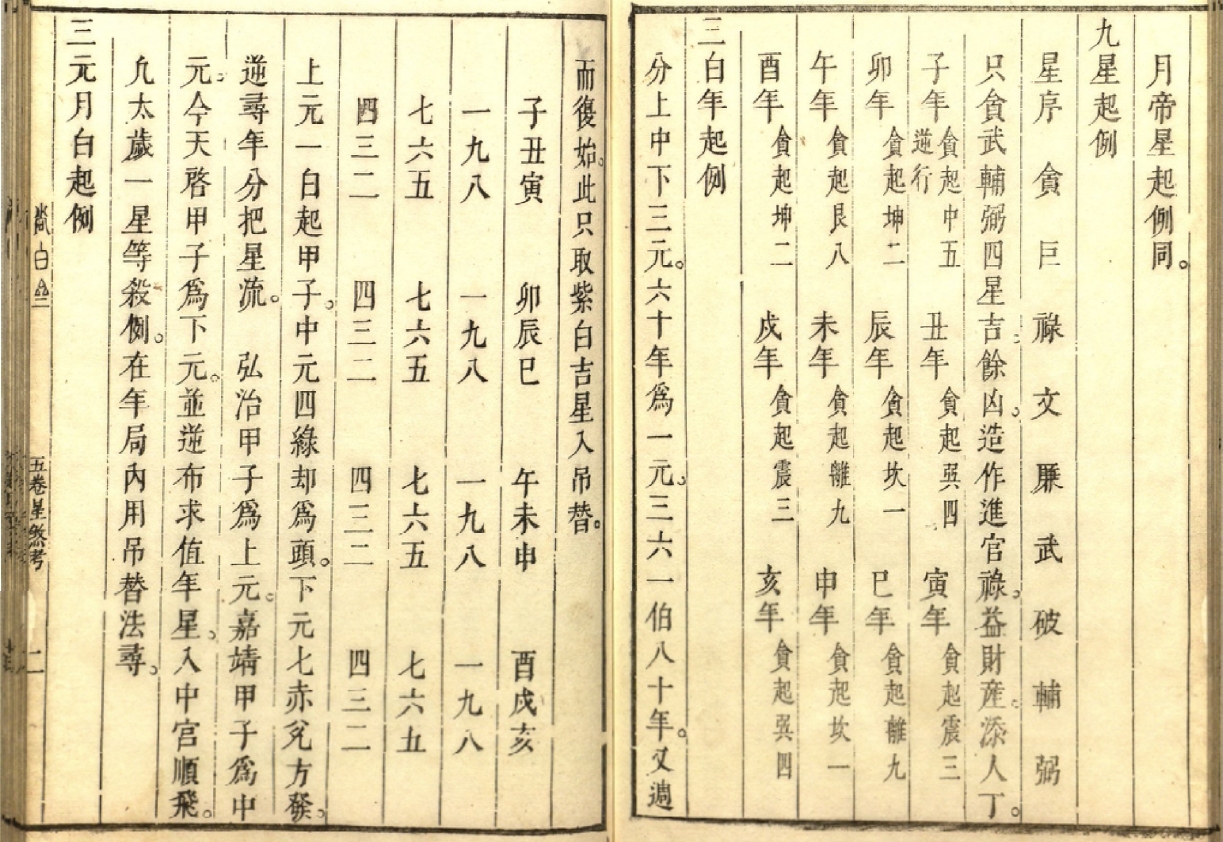 月帝星起例同。
九星起例
星序 貪 巨 祿 文 廉 武 破 輔 弼
只貪武輔弼四星吉餘凶。造作進官祿。益財產。添人丁。
子年 貪起中五 逆行 丑年 貪起巽四 寅年 貪起震三
卯年 貪起坤二 辰年 貪起坎一 巳年 貪起離九
午年 貪起艮八 未年 貪起離九 申年 貪起坎一
酉年 貪起坤二 戌年 貪起震三 亥年 貪起巽四
三白年起例
分上中下三元。六十年爲一元。三六一伯八十年。又週
而復始。此只取紫白吉星入吊替。
子丑寅 卯辰巳 午未申 酉戌亥
一九八 一九八 一九八 一九八
七六五 七六五 七六五 七六五
四三二 四三二 四三二 四三二
上元一白起甲子。中元四綠却爲頭。下元七赤兌方發。
逆尋年分把星流。 弘治甲子爲上元。嘉靖甲子爲中
元。今天啓甲子爲下元。並逆布求值年星。入中宮順飛。
凢太歲一星等殺例。在年局內用吊替法尋。
三元月白起例
五卷星煞考
二